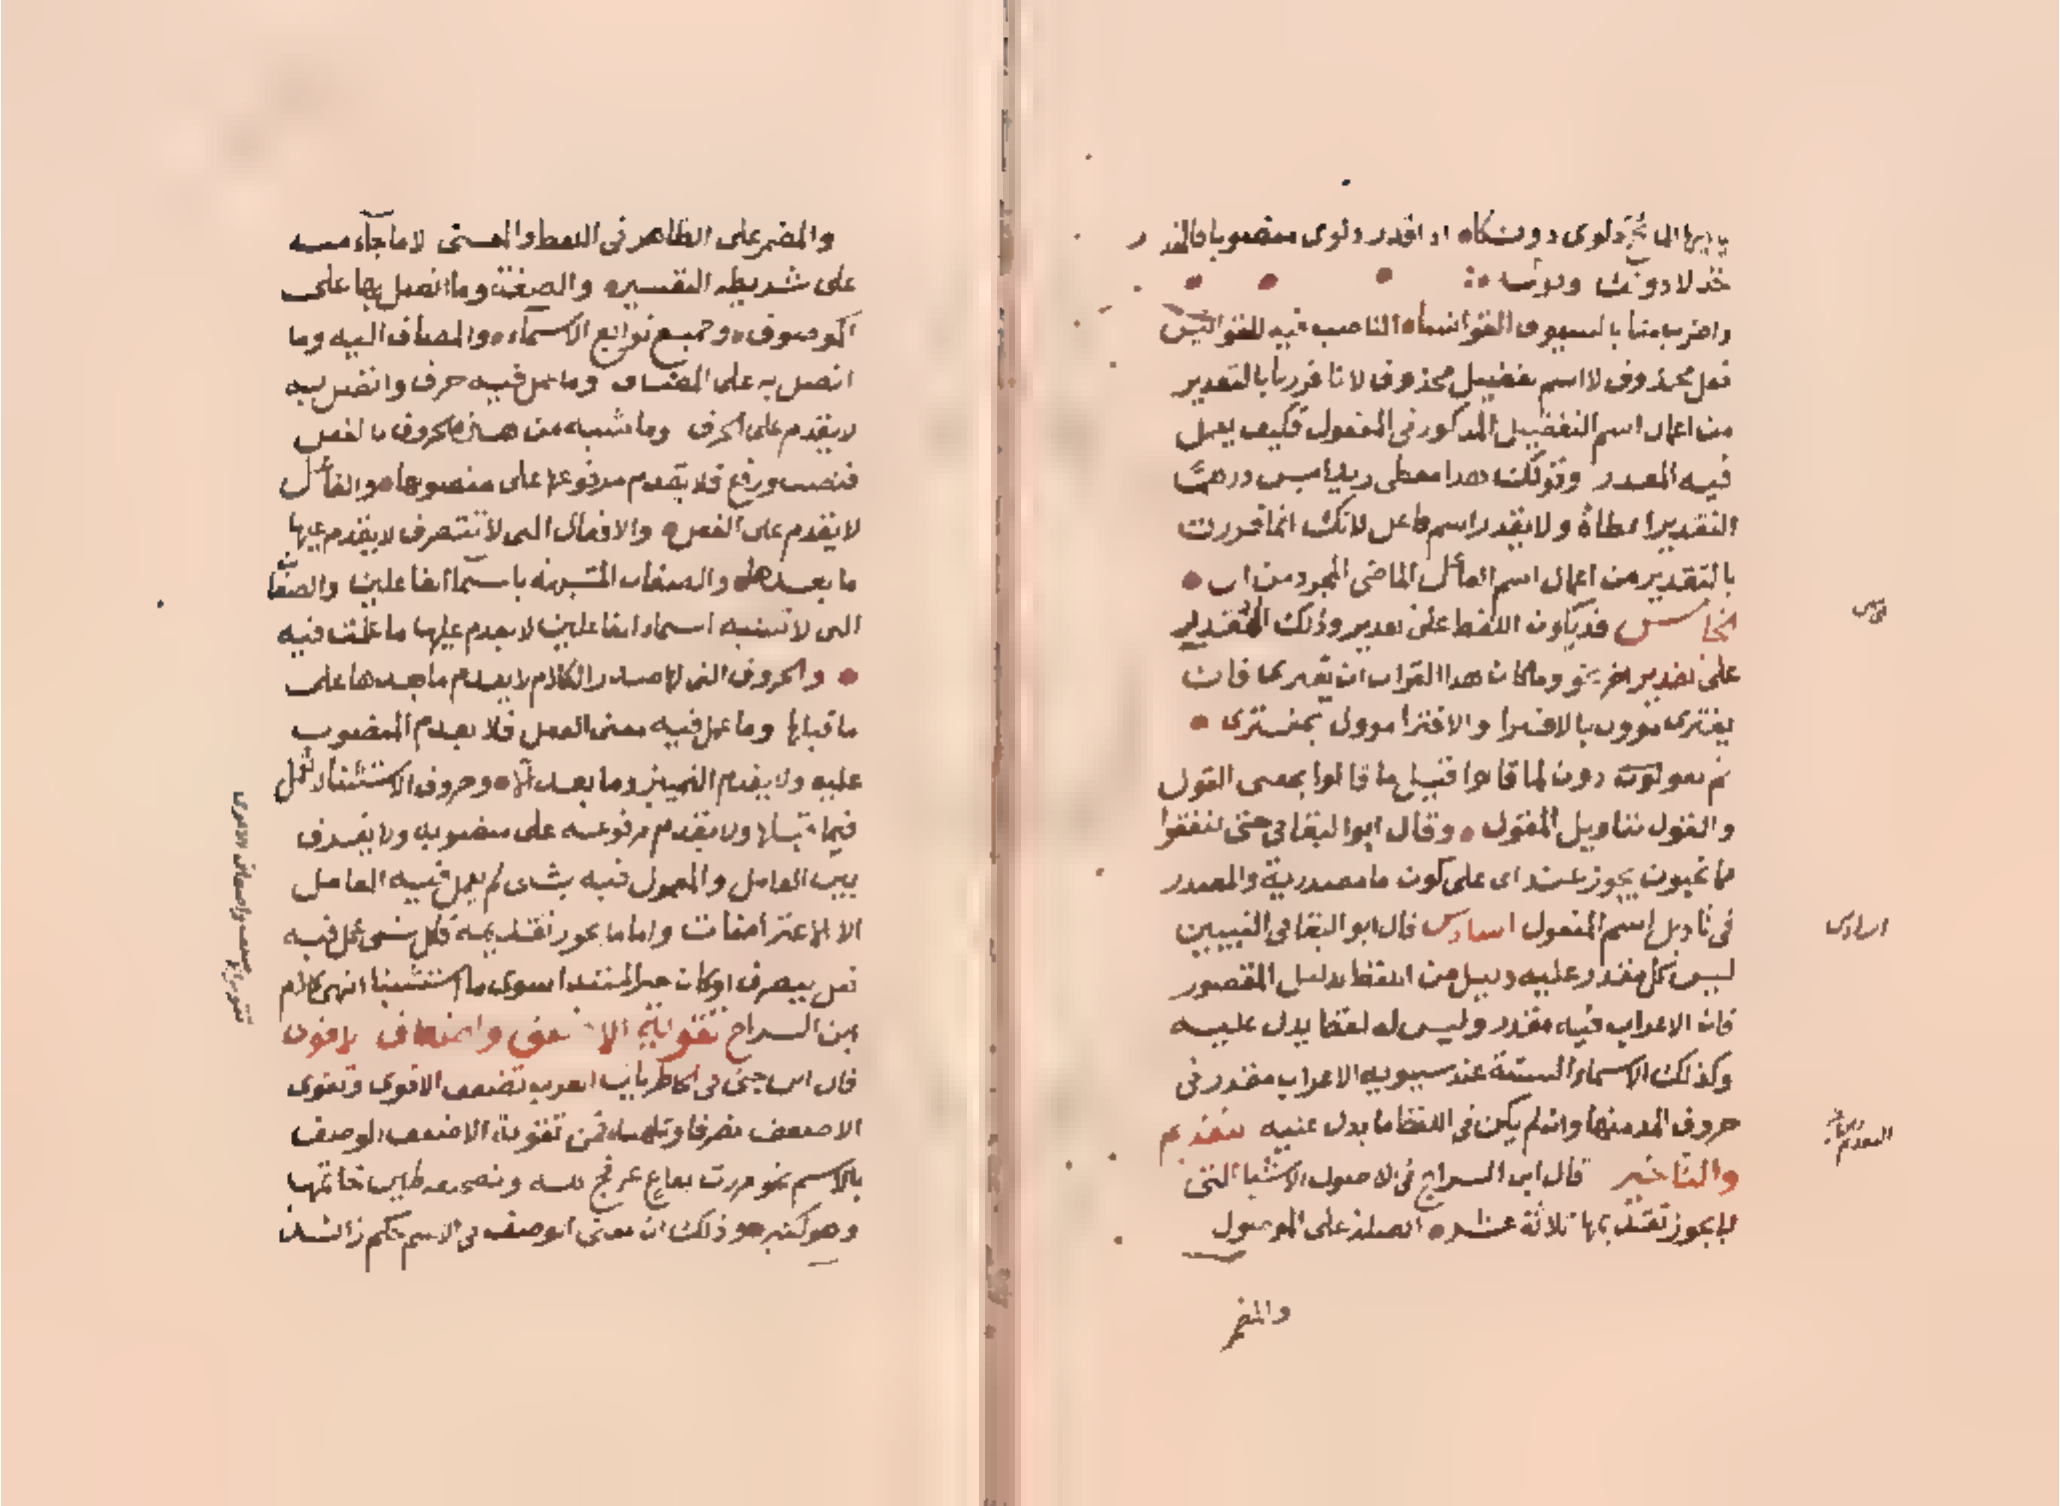 دلوى دونكاه اذا قدر دلوى منصوبا فالمقدر
خذ لا دونك
واضرب منا بالسيوف القوانسا الناصب فيه للقوانس
فعل محذوف لا اسم تفضيل محذوف لانا فررنا بالتقدير
من اعمال اسم التفضيل المذكور فى المفعول فكيف يعمل
فيه المقدر وقولك هذا معطى زيد امس درهما
التقدير اعطاه ولا يقدر اسم فاعل لانك انما فررت
بالتقدير من اعمال اسم الفاعل الماضى المجرد من ال
الخامس قد يكون اللفظ على تقدير وذلك المقدر
على تقدير اخر نحو وما كان هذا القران ان يفترى فان
يفترى مؤول بالافترا والافترا مؤول بمفترى
ثم يعودون لما قالوا قيل ما قالوا بمعنى القول
والقول بتاويل المقول وقال ابو البقا فى حتى تنفقوا
مما تحبون يجوز عند ابى على كون ما مصدرية والمصدر
فى تاويل اسم المفعول السادس قال ابو البقا فى التبيين
ليس كل مقدر عليه دليل من اللفظ بدليل المقصور
فان الاعراب فيه مقدر وليس له لفظ يدل عليه
وكذلك الاسماء الستة عند سيبويه الاعراب مقدر فى
حروف المد منها وان لم يكن فى اللفظ ما يدل عليه التقديم
والتاخير قال ابن السراج فى الاصول الاشيا التى
لا يجوز تقديمها ثلاثة عشره الصلة على الموصول
والمضمر
الخامس
السادس
التقديم والتاخير
والمضمر على الظاهر فى اللفظ والمعنى الا ما جاء منه
على شريطة التفسير والصفة وما اتصل بها على
الموصوف وجميع توابع الاسماء والمضاف اليه وما
اتصل به على المضاف وما عمل فيه حرف واتصل به
لا يقدم على الحرف وما شبه من هذه الحروف بالفعل
فنصب ورفع فلا يقدم مرفوعها على منصوبها والفاعل
لا يقدم على الفعل والافعال التى لا تتصرف لا يقدم عليها
ما بعدها والصفات المشبهة باسما الفاعلين والصفات
التى لا تشبه اسماء الفاعلين لا يقدم عليها ما عملت فيه
والحروف التى لها صدر الكلام لا يقدم ما بعدها على
ما قبلها وما عمل فيه معنى الفعل فلا يقدم المنصوب
عليه ولا يقدم التمييز وما بعد الا وحروف الاستثنا لا تعمل
فيما قبلها ولا يقدم مرفوعه على منصوبه ولا يفرق
بين العامل والمعمول فيه بشى لم يعمل فيه العامل
الا الاعتراضات واما ما يجوز تقديمه فكل شى عمل فيه
فعل يتصرف او كان خبر المبتدا سوى ما استثنينا انتهى كلام
ابن السراج تقوية الاضعف واضعاف الاقوى
قال ابن جنى فى الخاطريات العرب تضعف الاقوى وتقوى
الاضعف تصرفا وتلعبا فمن تقوية الاضعف الوصف
بالاسم نحو مررت بقاع عرفج كله وبصحيفة طين خاتمها
وهو كثير وذلك ان معنى الوصف فى الاسم حكم زائد
تقوية الاضعف واضعاف الاقوى